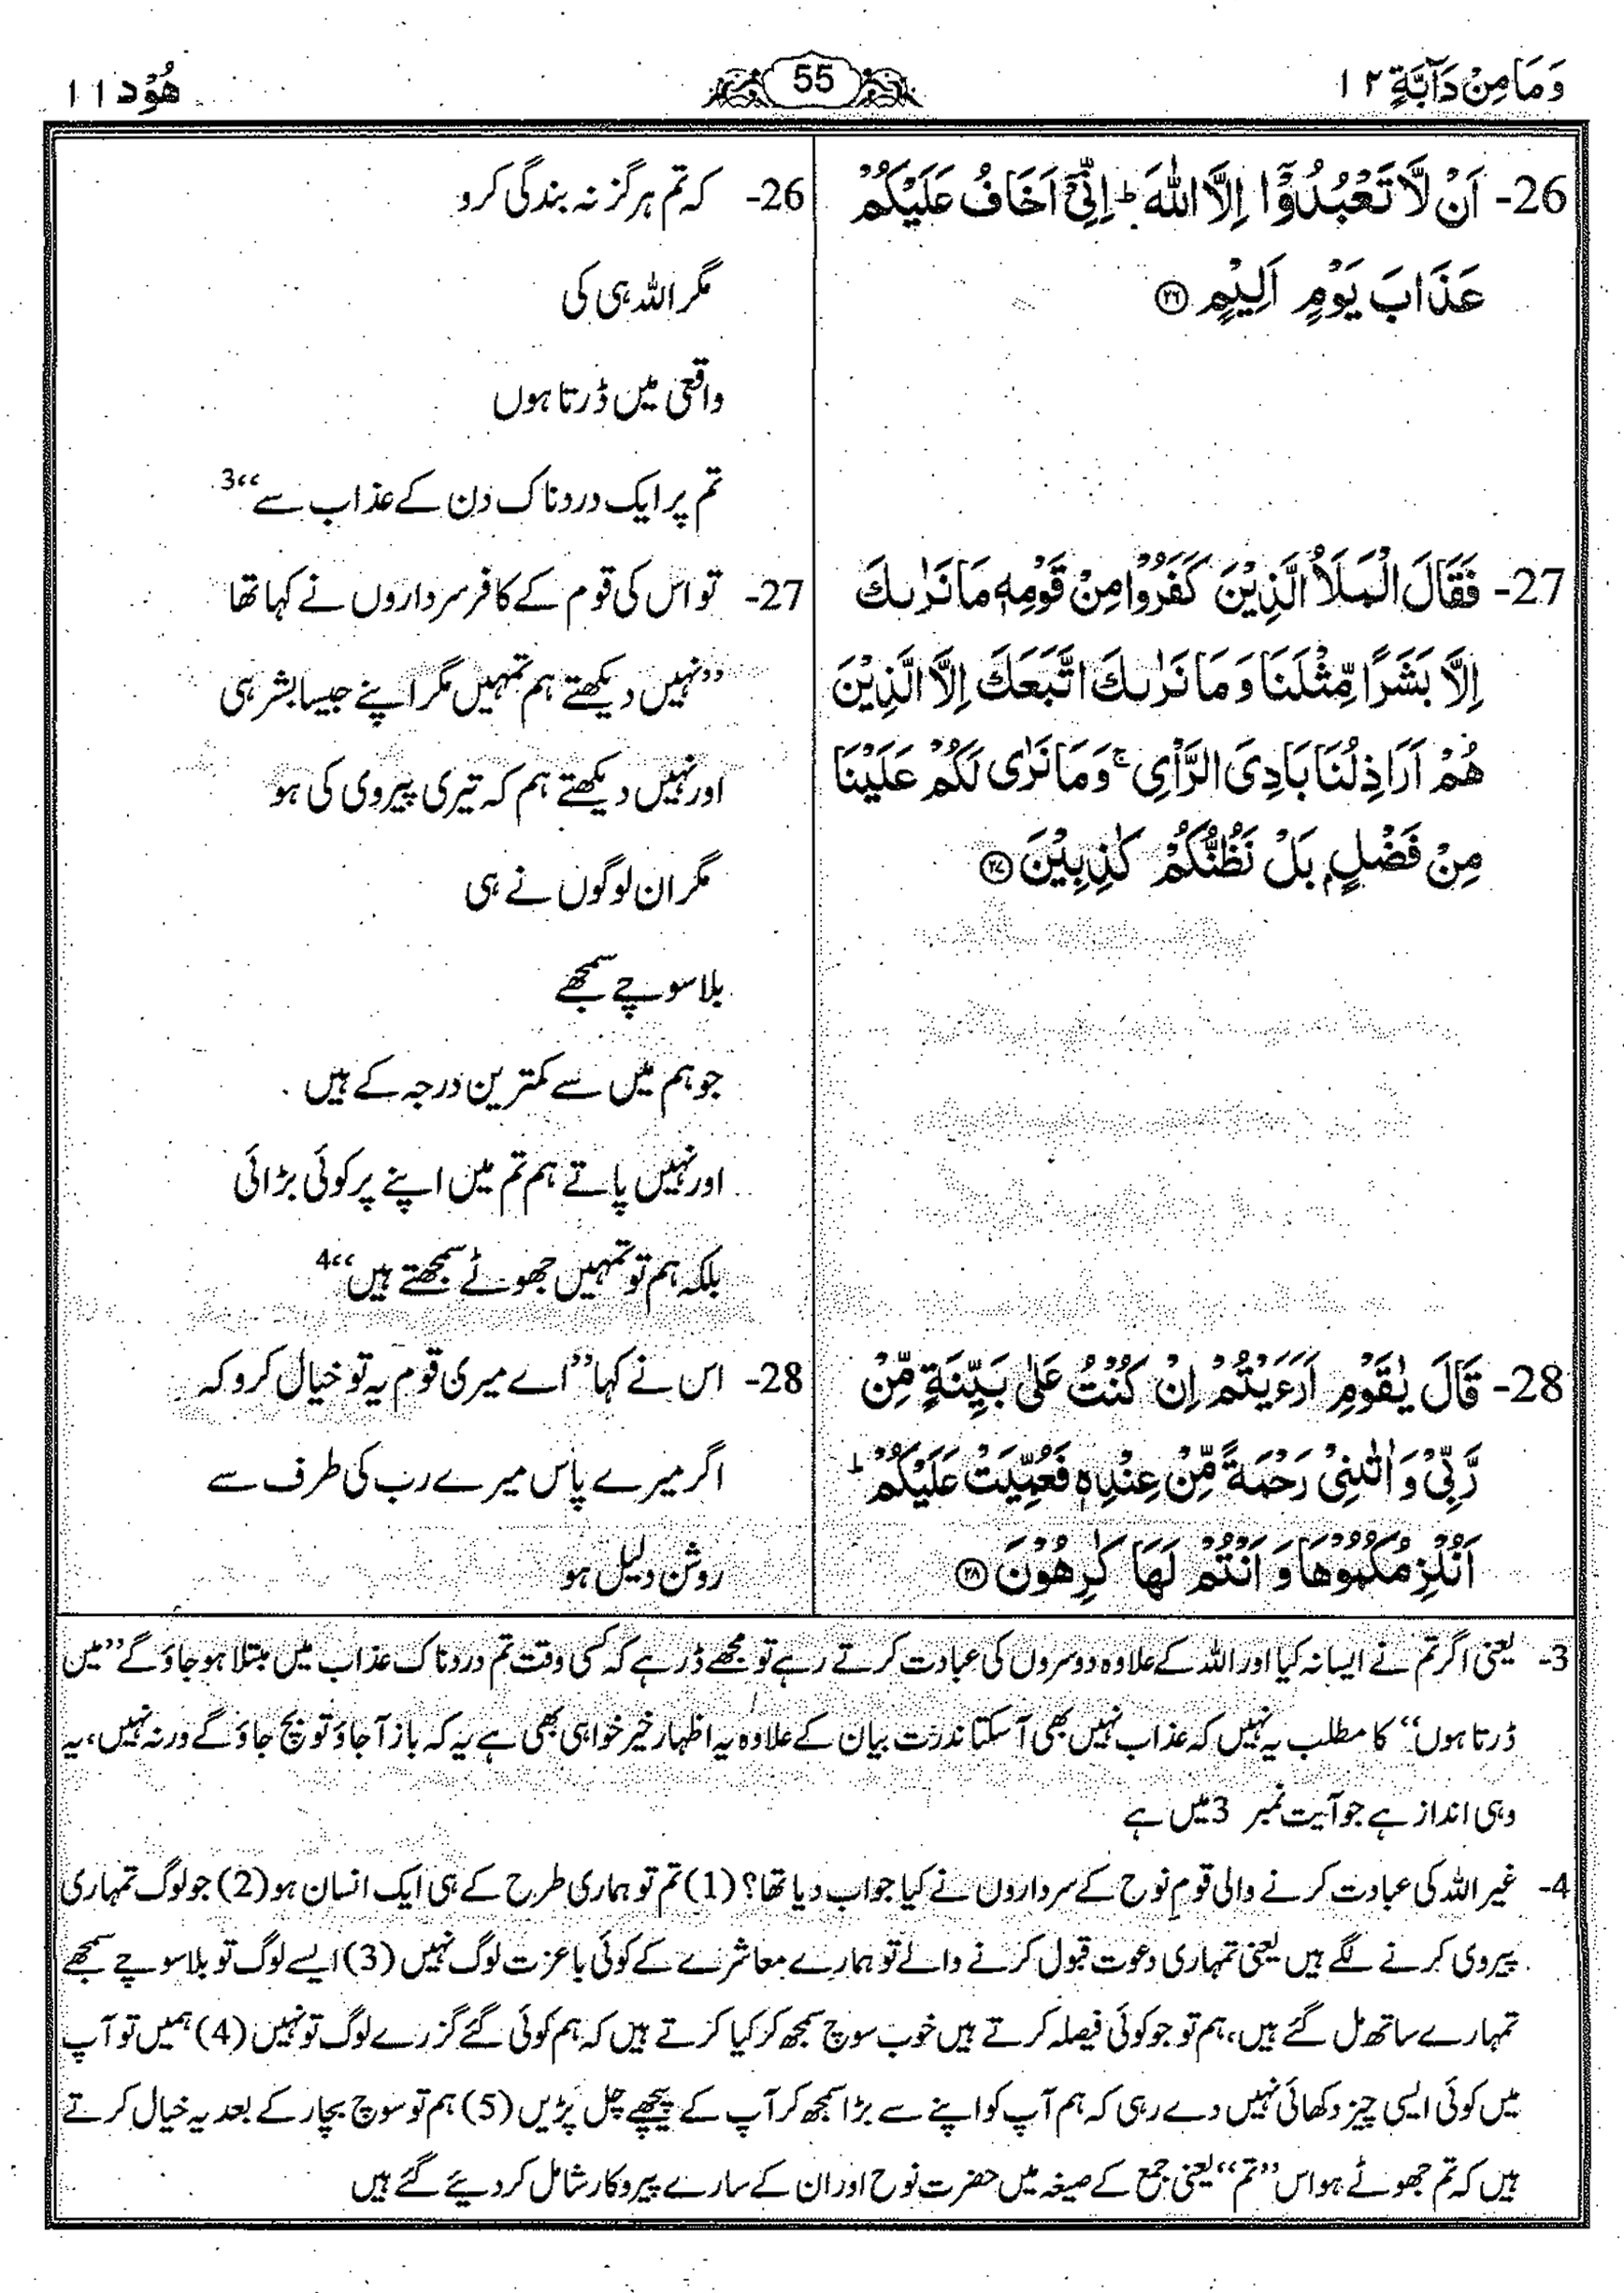 وَمَا مِنْ دَآبَّةٍ ١٢
55
هُوْد ١١
26- اَنْ لَّا تَعْبُدُوْٓا اِلَّا اللّٰهَ ؕ اِنِّیْٓ اَخَافُ عَلَیْكُمْ
عَذَابَ یَوْمٍ اَلِیْمٍ ۝۲۶
27- فَقَالَ الْمَلَاُ الَّذِیْنَ كَفَرُوْا مِنْ قَوْمِهٖ مَا نَرٰىكَ
اِلَّا بَشَرًا مِّثْلَنَا وَ مَا نَرٰىكَ اتَّبَعَكَ اِلَّا الَّذِیْنَ
هُمْ اَرَاذِلُنَا بَادِیَ الرَّاْیِ ۚ وَ مَا نَرٰی لَكُمْ عَلَیْنَا
مِنْ فَضْلٍۭ بَلْ نَظُنُّكُمْ كٰذِبِیْنَ ۝۲۷
28- قَالَ یٰقَوْمِ اَرَءَیْتُمْ اِنْ كُنْتُ عَلٰی بَیِّنَةٍ مِّنْ
رَّبِّیْ وَ اٰتٰىنِیْ رَحْمَةً مِّنْ عِنْدِهٖ فَعُمِّیَتْ عَلَیْكُمْ ؕ
اَنُلْزِمُكُمُوْهَا وَ اَنْتُمْ لَهَا كٰرِهُوْنَ ۝۲۸
26- کہ تم ہرگز نہ بندگی کرو
مگر اللہ ہی کی
واقعی میں ڈرتا ہوں
تم پر ایک دردناک دن کے عذاب سے“3
27- تو اس کی قوم کے کافر سرداروں نے کہا تھا
”نہیں دیکھتے ہم تمہیں مگر اپنے جیسا بشر ہی
اور نہیں دیکھتے ہم کہ تیری پیروی کی ہو
مگر ان لوگوں نے ہی
بلا سوچے سمجھے
جو ہم میں سے کمترین درجہ کے ہیں
اور نہیں پاتے ہم تم میں اپنے پر کوئی بڑائی
بلکہ ہم تو تمہیں جھوٹے سمجھتے ہیں“4
28- اس نے کہا ”اے میری قوم یہ تو خیال کرو کہ
اگر میرے پاس میرے رب کی طرف سے
روشن دلیل ہو
3- یعنی اگر تم نے ایسا نہ کیا اور اللہ کے علاوہ دوسروں کی عبادت کرتے رہے تو مجھے ڈر ہے کہ کسی وقت تم دردناک عذاب میں مبتلا ہو جاؤ گے ”میں
ڈرتا ہوں“ کا مطلب یہ نہیں کہ عذاب نہیں بھی آ سکتا ندرت بیان کے علاوہ یہ اظہار خیر خواہی بھی ہے یہ کہ باز آ جاؤ تو بچ جاؤ گے ورنہ نہیں، یہ
وہی انداز ہے جو آیت نمبر 3 میں ہے
4- غیر اللہ کی عبادت کرنے والی قومِ نوح کے سرداروں نے کیا جواب دیا تھا؟ (1) تم تو ہماری طرح کے ہی ایک انسان ہو (2) جو لوگ تمہاری
پیروی کرنے لگے ہیں یعنی تمہاری دعوت قبول کرنے والے تو ہمارے معاشرے کے کوئی باعزت لوگ نہیں (3) ایسے لوگ تو بلا سوچے سمجھے
تمہارے ساتھ مل گئے ہیں، ہم تو جو کوئی فیصلہ کرتے ہیں خوب سوچ سمجھ کر کیا کرتے ہیں کہ ہم کوئی گئے گزرے لوگ تو نہیں (4) ہمیں تو آپ
میں کوئی ایسی چیز دکھائی نہیں دے رہی کہ ہم آپ کو اپنے سے بڑا سمجھ کر آپ کے پیچھے چل پڑیں (5) ہم تو سوچ بچار کے بعد یہ خیال کرتے
ہیں کہ تم جھوٹے ہو اس ”تم“ یعنی جمع کے صیغہ میں حضرت نوح اور ان کے سارے پیروکار شامل کر دیئے گئے ہیں